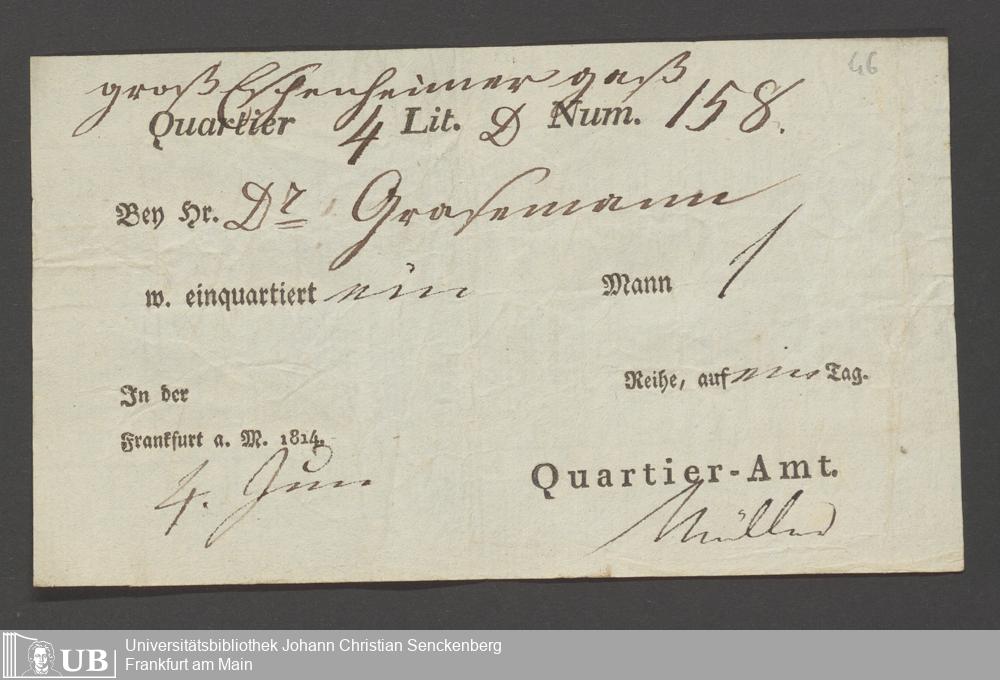 46
groß Eschenheimer gaß
Quartier 4 Lit. D Num. 158.
Bey Hr. Dr Grasemann
w. einquartiert ein Mann 1
In der Reihe, auf ein Tag.
Frankfurt a. M. 1814.
4. Jun
Quartier-Amt.
Müller
UB Universitätsbibliothek Johann Christian Senckenberg
Frankfurt am Main